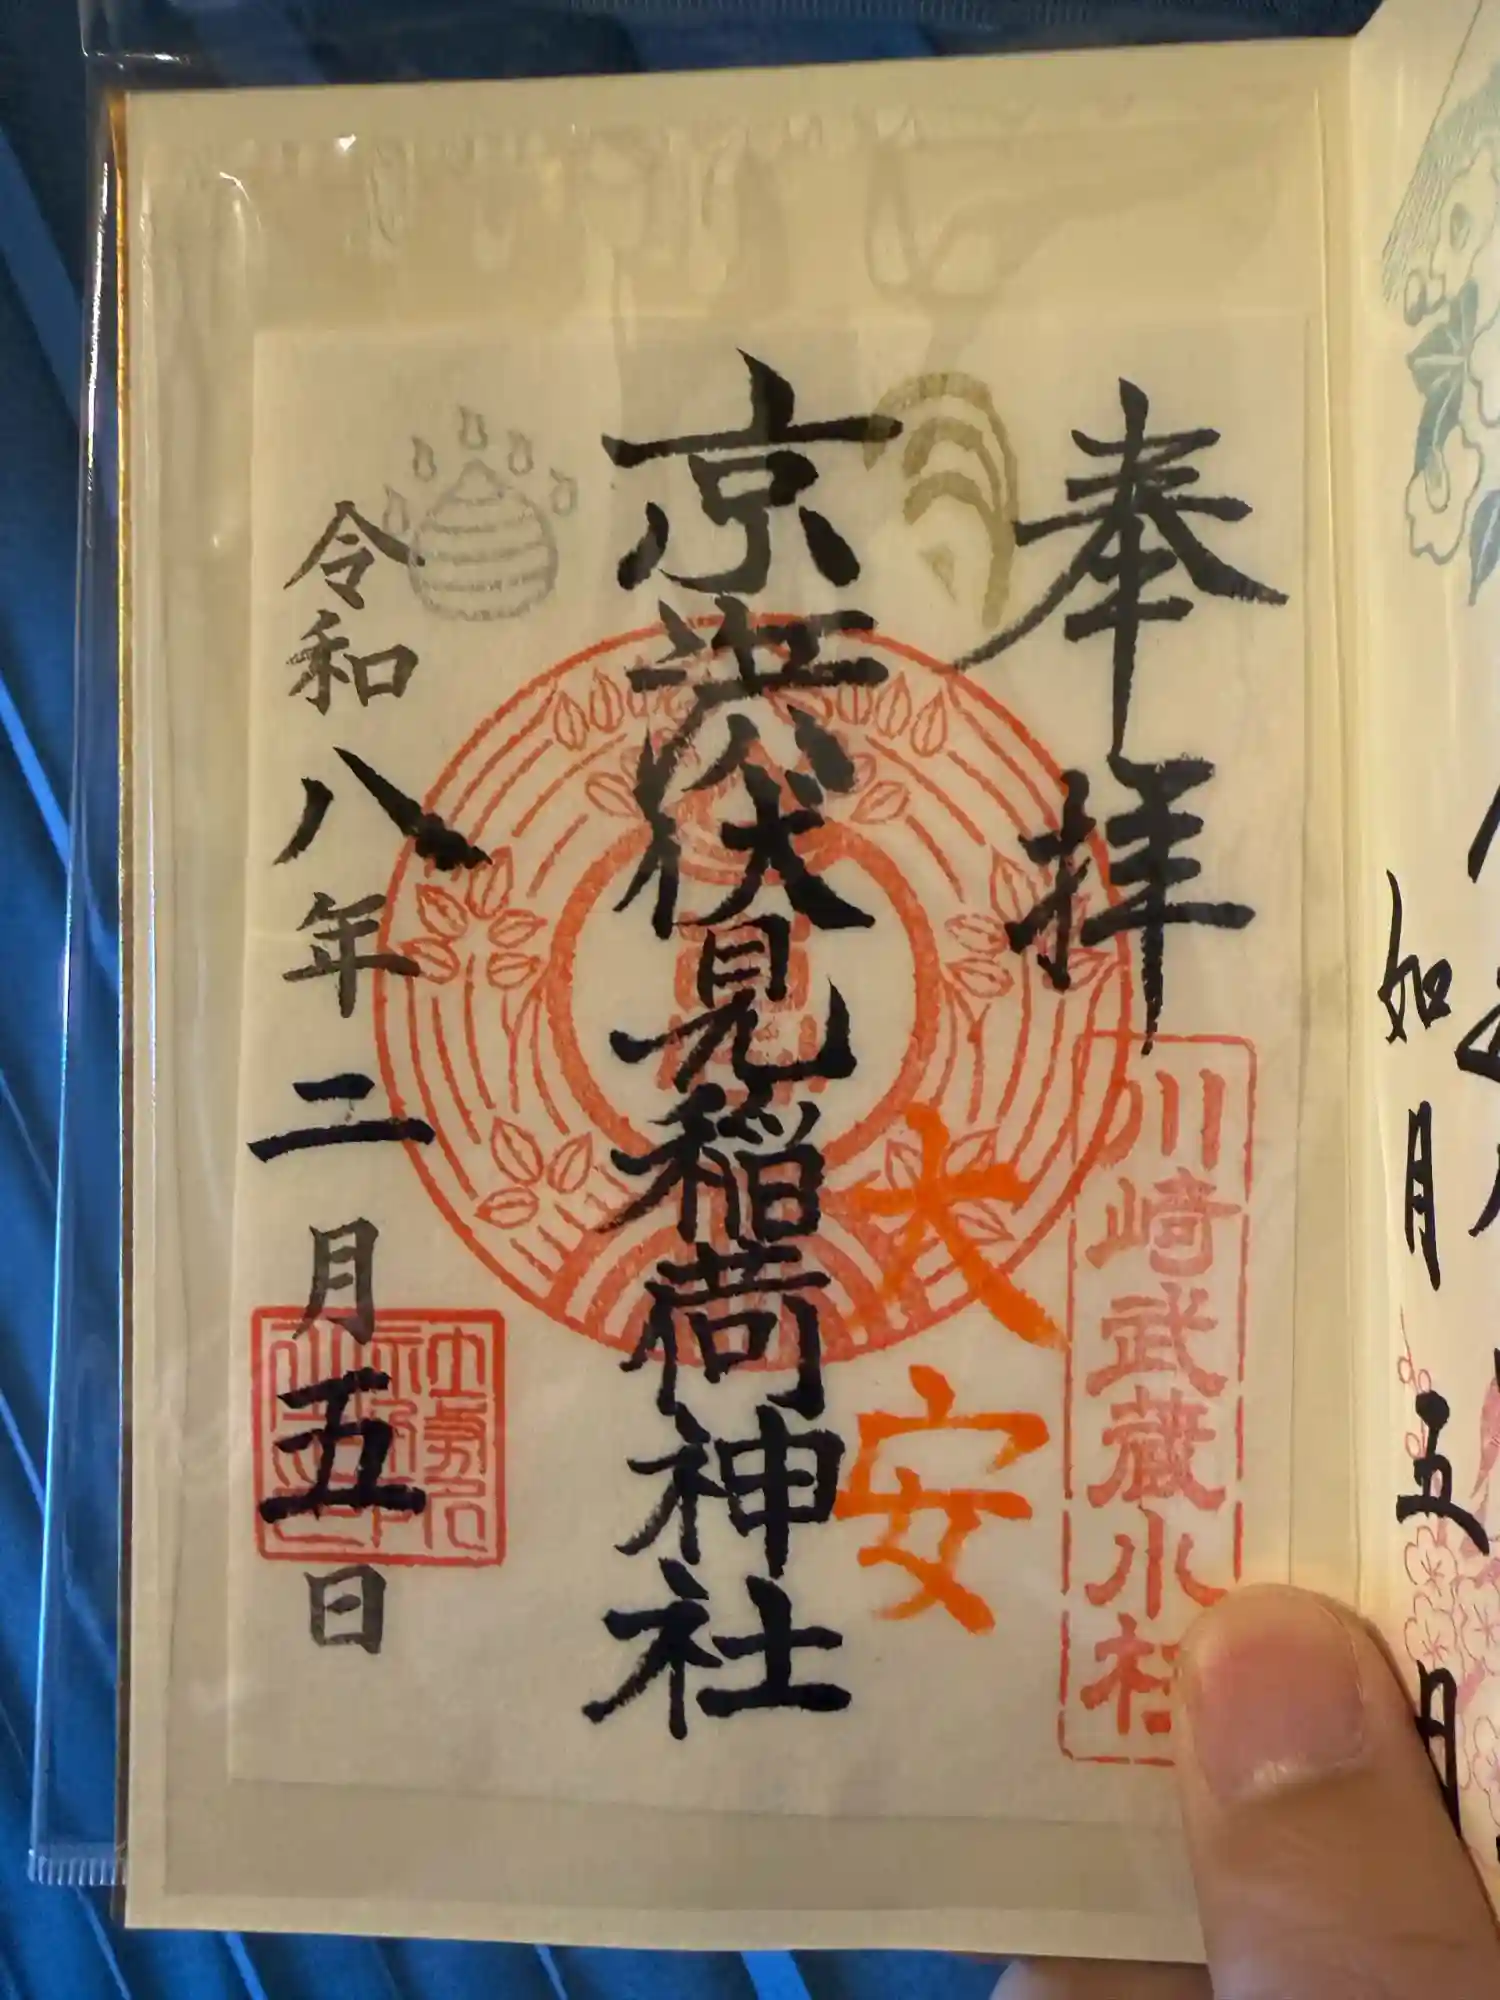 如月五日
奉拝
川崎武蔵小杉
大安
京濱伏見稲荷神社
令和八年二月五日